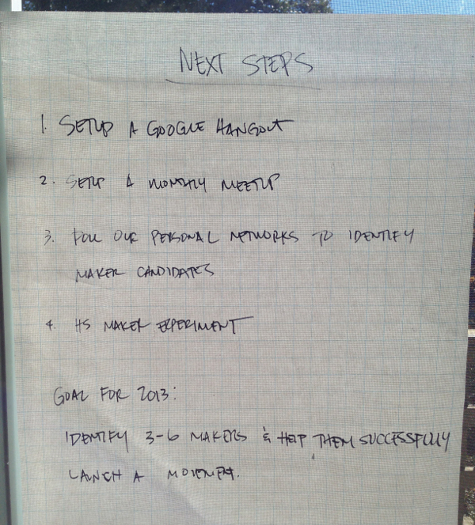 NEXT STEPS
1. SETUP A GOOGLE HANGOUT
2. SETUP A MONTHLY MEETUP
3. POLL OUR PERSONAL NETWORKS TO IDENTIFY
MAKER CANDIDATES
4. HS MAKER EXPERIMENT
GOAL FOR 2013:
IDENTIFY 3-6 MAKERS & HELP THEM SUCCESSFULLY
LAUNCH A MOVEMENT.